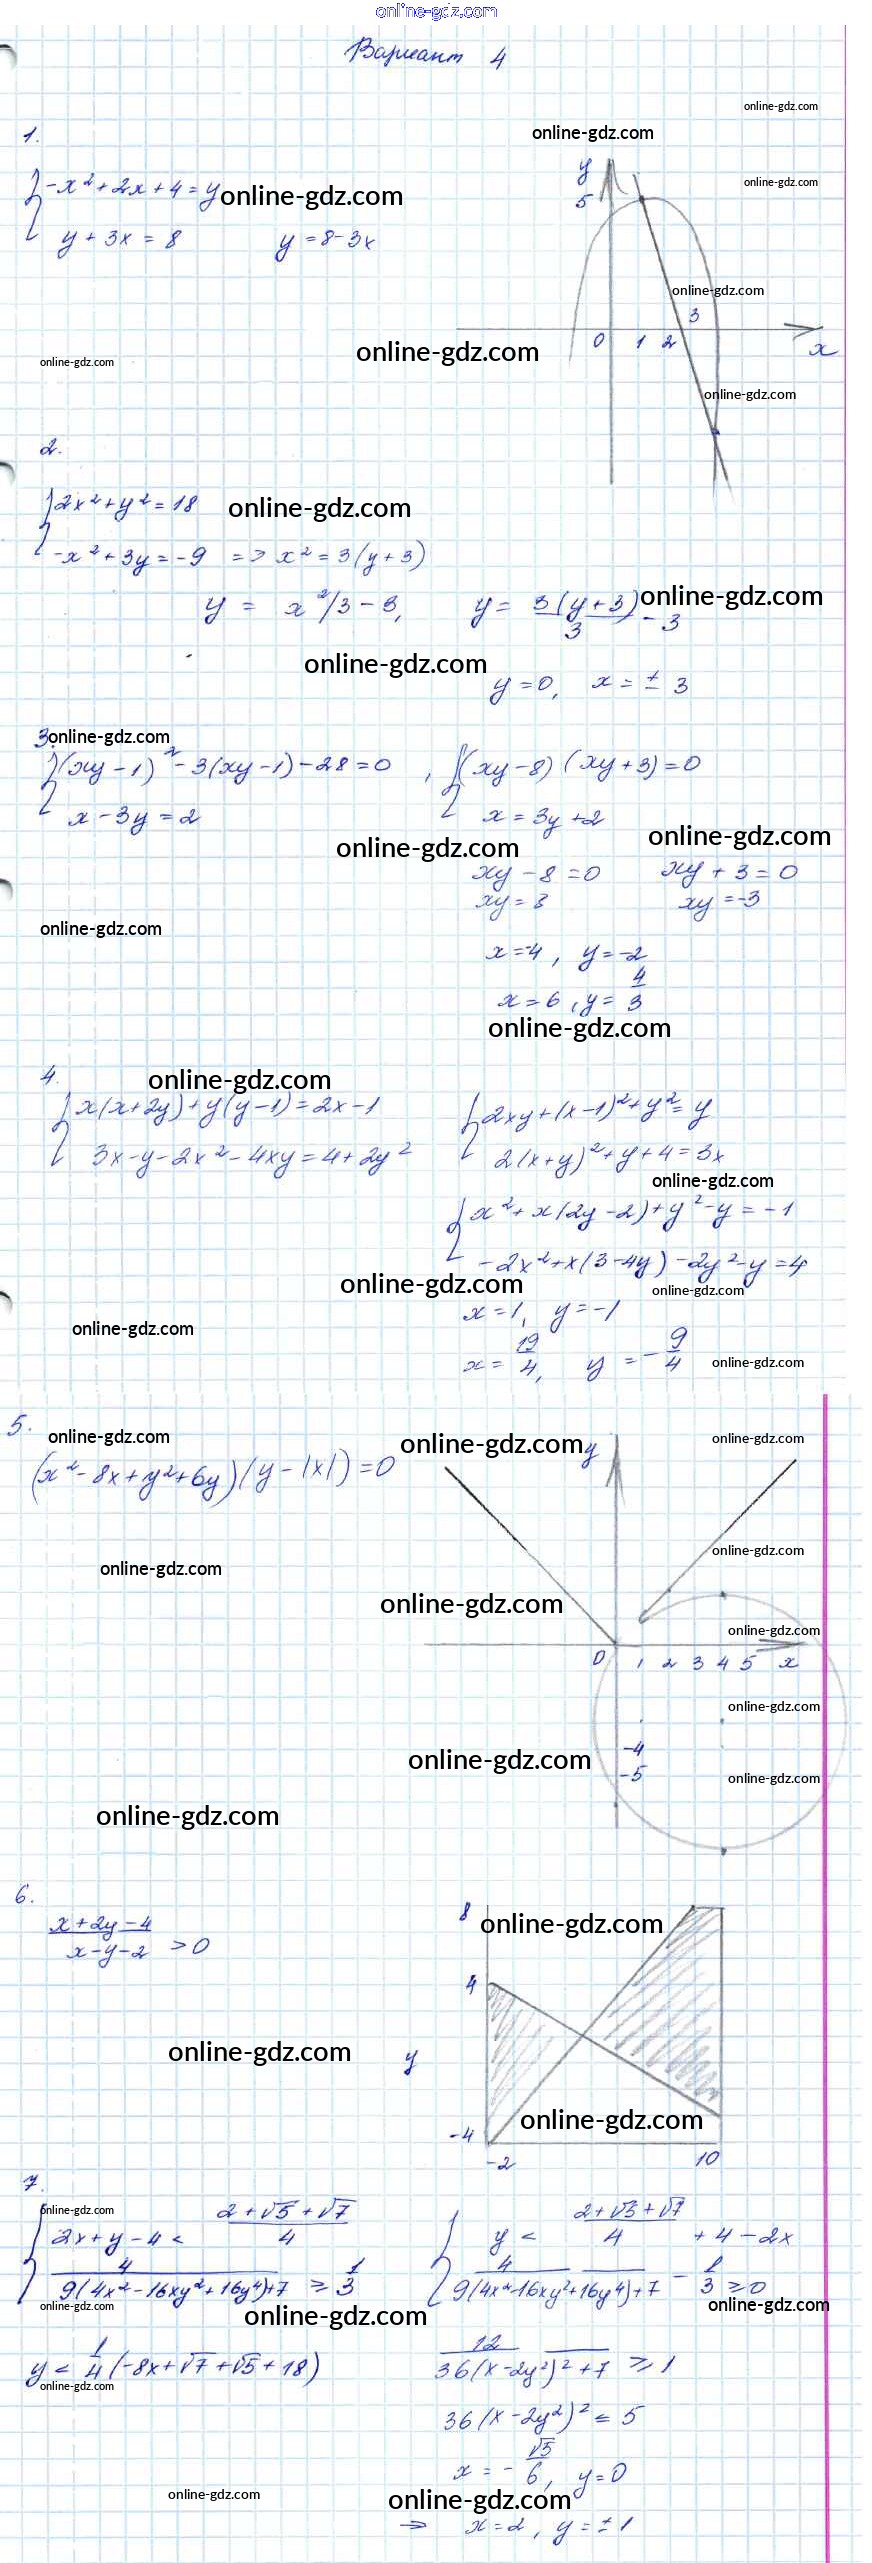 online-gdz.com
Вариант 4
online-gdz.com
1.
online-gdz.com
y
-x² + 2x + 4 = y online-gdz.com
online-gdz.com
5
y + 3x = 8 y = 8 - 3x
online-gdz.com
3
online-gdz.com
online-gdz.com
0 1 2 x
online-gdz.com
2.
2x² + y² = 18 online-gdz.com
-x² + 3y = -9 => x² = 3(y + 3)
y = x²/3 - 3, y = 3(y + 3)/3 - 3 online-gdz.com
online-gdz.com
y = 0, x = ± 3
3. online-gdz.com
(xy - 1)² - 3(xy - 1) - 28 = 0 , (xy - 8)(xy + 3) = 0
x - 3y = 2 x = 3y + 2
online-gdz.com online-gdz.com
xy - 8 = 0 xy + 3 = 0
xy = 8 xy = -3
online-gdz.com
x = -4, y = -2
x = 6, y = 4/3
online-gdz.com
4. online-gdz.com
x(x + 2y) + y(y - 1) = 2x - 1 2xy + (x - 1)² + y² = y
3x - y - 2x² - 4xy = 4 + 2y² 2(x + y)² + y + 4 = 3x
online-gdz.com
x² + x(2y - 2) + y² - y = -1
-2x² + x(3 - 4y) - 2y² - y = 4
online-gdz.com online-gdz.com
x = 1, y = -1
online-gdz.com
x = 19/4, y = -9/4 online-gdz.com
5. online-gdz.com
online-gdz.com y online-gdz.com
(x² - 8x + y² + 6y)(y - |x|) = 0
online-gdz.com
online-gdz.com
online-gdz.com
online-gdz.com
0 1 2 3 4 5 x
online-gdz.com
-4
online-gdz.com
-5 online-gdz.com
online-gdz.com
6.
8 online-gdz.com
x + 2y - 4 / x - y - 2 > 0
4
online-gdz.com y
online-gdz.com
-4
-2 10
7.
online-gdz.com
2x + y - 4 < 2 + √5 + √7 / 4 y < 2 + √5 + √7 / 4 + 4 - 2x
4 / 9(4x² - 16xy² + 16y⁴) + 7 ⩾ 1/3 4 / 9(4x² - 16xy² + 16y⁴) + 7 - 1/3 ⩾ 0
online-gdz.com online-gdz.com
online-gdz.com
y < 1/4 (-8x + √7 + √5 + 18) 12 / 36(x - 2y²)² + 7 ⩾ 1
online-gdz.com
36(x - 2y²)² ⩽ 5
x = -√5/6, y = 0
online-gdz.com
online-gdz.com
=> x = 2, y = ± 1